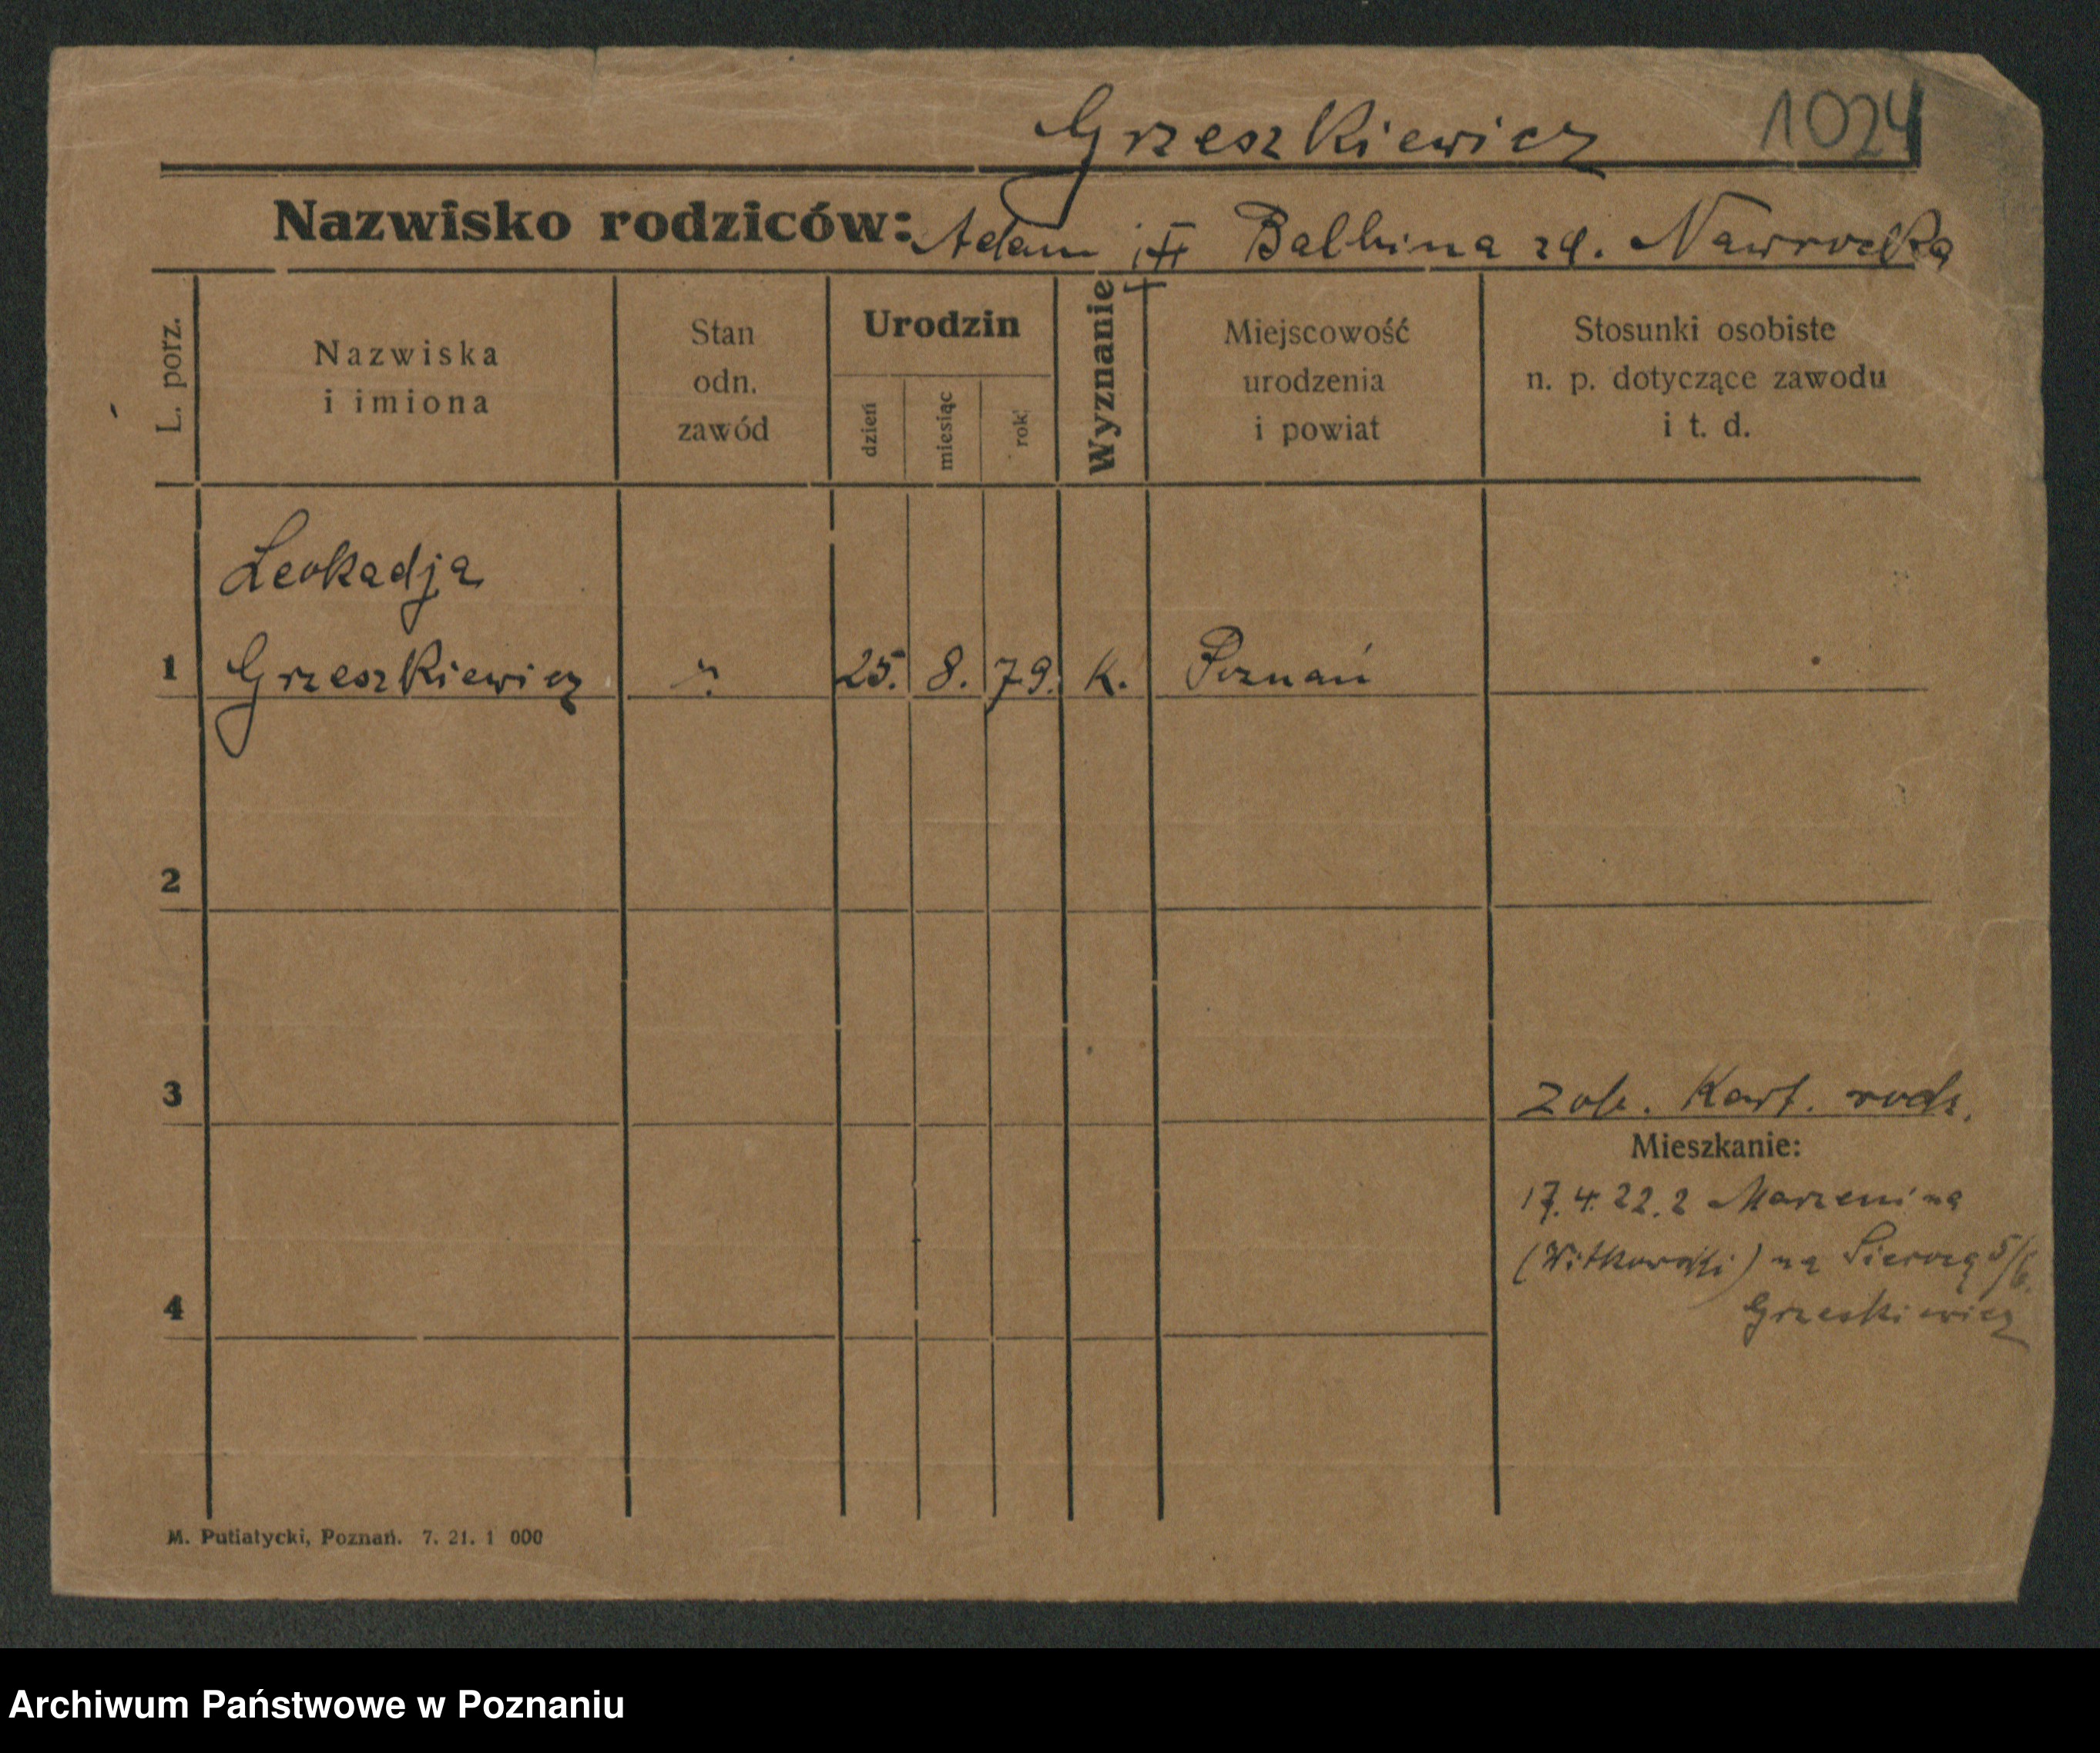 Grzeszkiewicz 1024
Nazwisko rodziców: Adam i Balbina zd. Nawrocka
L. porz.
Nazwiska
i imiona
Stan
odn.
zawód
Urodzin
dzień
miesiąc
rok
Wyznanie
Miejscowość
urodzenia
i powiat
Stosunki osobiste
n. p. dotyczące zawodu
i t. d.
Leokadja
1 Grzeszkiewicz 25. 8. 79. K. Poznań
2
3 Zob. Kart. rodz.
Mieszkanie:
17.4.22. z Marzenina
(Witkowski) na 5/6.
Grzeskiewicz
4
M. Putiatycki, Poznań. 7. 21. 1 000
Archiwum Państwowe w Poznaniu